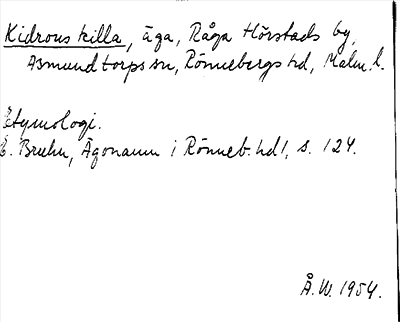 Kidrous killa, äga, Råga Hörstads by,
Asmundtorps sn, Rönnebergs hd, Malm. l.
Etymologi.
E. Bruhn, Ägonamn i Rönneb. hd 1, s. 124.
Å. W. 1954.